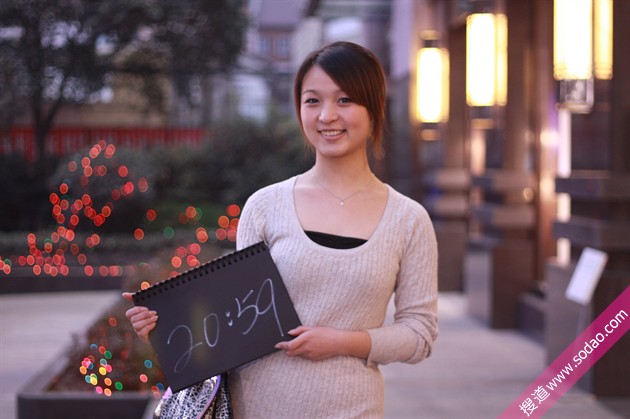 20:59
搜道www.sodao.com